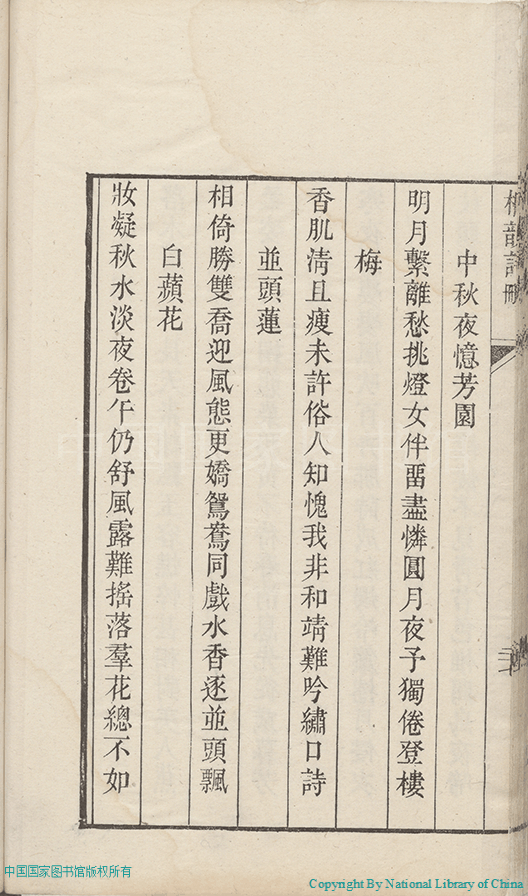 韻詩
三
中秋夜憶芳園
明月繫離愁挑燈女伴畱盡憐圓月夜予獨倦登樓
梅
香肌淸且瘦未許俗人知愧我非和靖難吟繡口詩
並頭蓮
相倚勝雙喬迎風態更嬌鴛鴦同戲水香逐並頭飄
白蘋花
妝凝秋水淡夜卷午仍舒風露難搖落羣花總不如
中国国家图书馆
中国国家图书馆版权所有
Copyright By National Library of China